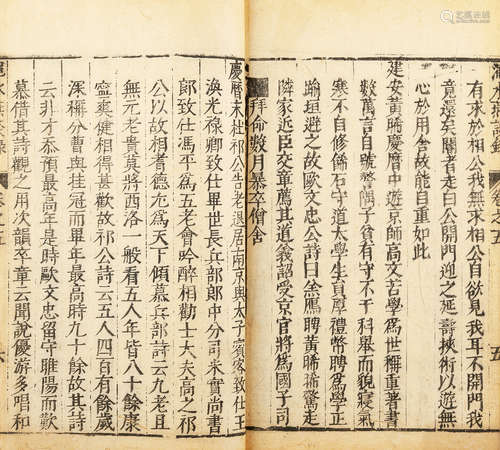 有求於相公我自欲見我不開門我
竟還矣閽者走曰公開門迎之延壽挾術以遊無
心於用舍故能自重如此
建安黃晞慶曆中遊京師高文苦學為世稱重著書
數萬言自號聱隅子貧有守不干科舉而貌寢氣
寒不自修飾石守道太學生員厚禮幣聘為學正
踰垣避之故歐文忠公詩曰余鴈聘黃晞晞驚走
隣家近臣交章薦其道義詔受京官將為國子司
拜命數月暴卒僧舍
慶曆末杜祁公告老退居南京與太子賓客致仕王
渙光祿卿致仕畢世長兵部郎中分司朱實尚書
郎致仕馮平為五老會吟醉相勸士大夫高之祁
公以故相耆德尤為天下傾慕兵部詩云九老且
無元老貴莫將西洛一般看五人年皆八十餘康
寧爽健相得甚歡故祁公詩云五人四百有餘歲
深稱分曹與挂冠而畢年最高時九十餘故其詩
云非才忝預最高年是時歐文忠留守睢陽而歎
慕借其詩觀之用次韻卒章云聞說優游多唱和